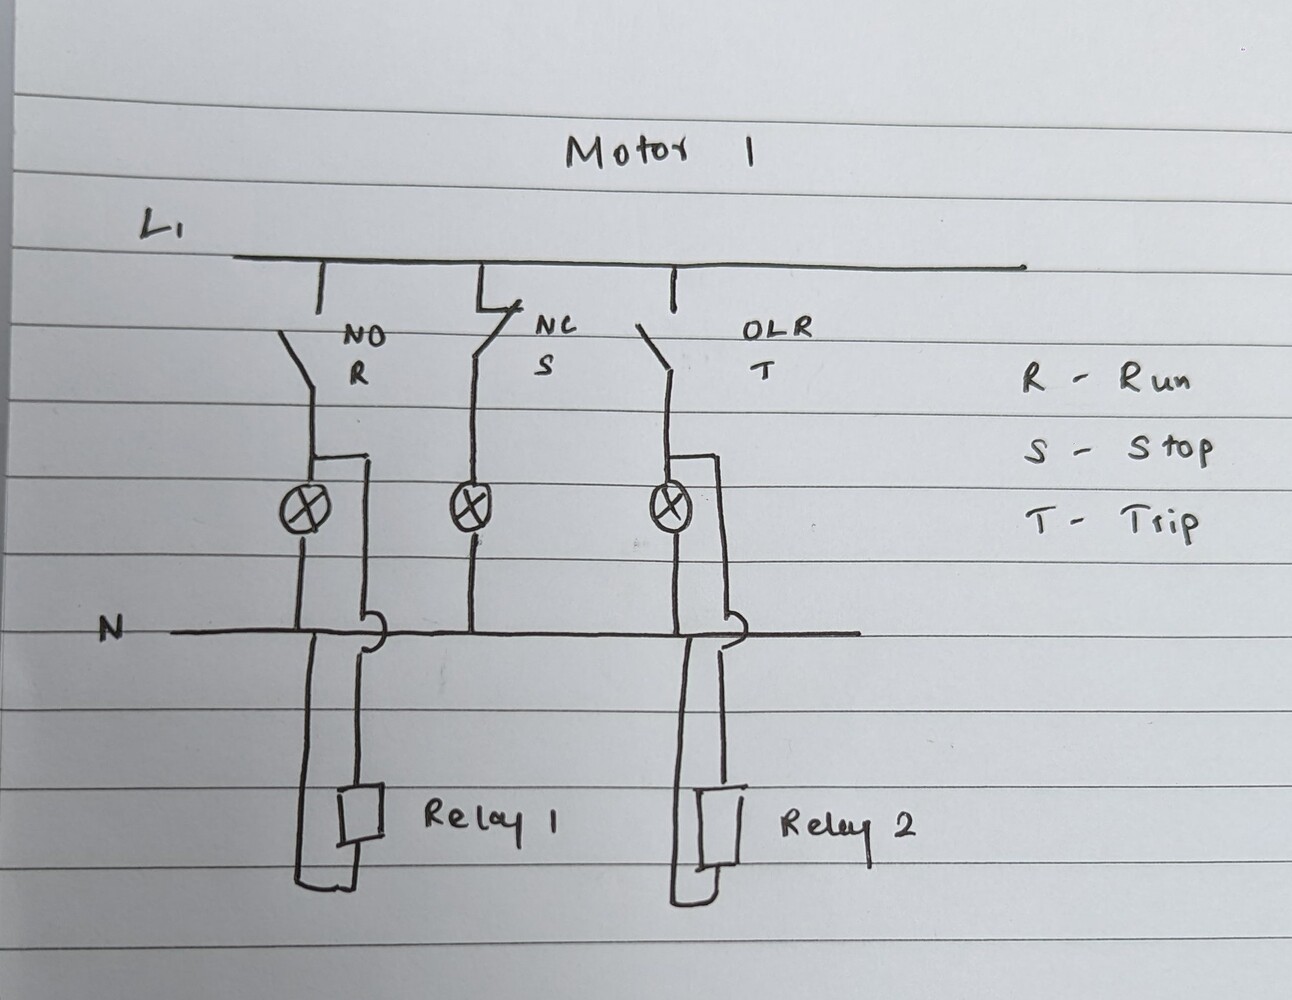 Motor 1
L1
NO
R
NC
S
OLR
T
R - Run
S - Stop
T - Trip
N
Relay 1
Relay 2